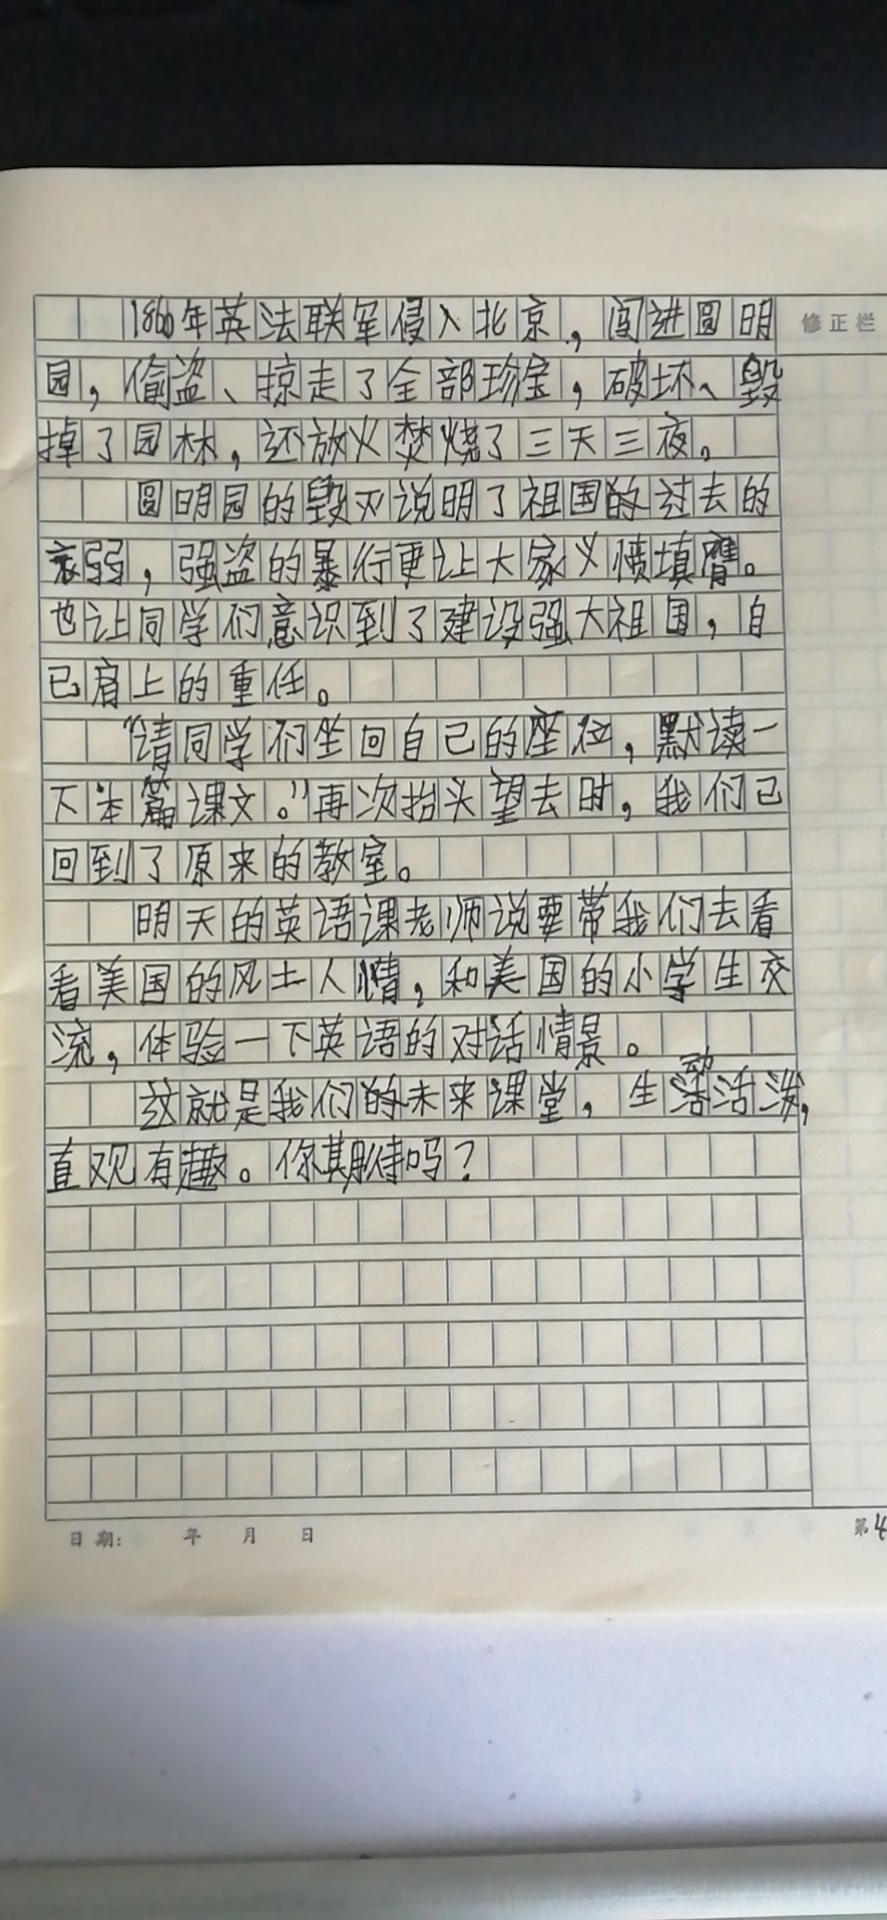 1860年英法联军侵入北京，闯进圆明
修正栏
园，偷盗、掠走了全部珍宝，破坏、毁
掉了园林，还放火焚烧了三天三夜。
圆明园的毁灭说明了祖国的过去的
衰弱，强盗的暴行更让大家义愤填膺。
也让同学们意识到了建设强大祖国，自
已肩上的重任。
“请同学们坐回自己的座位，默读一
下本篇课文。”再次抬头望去时，我们已
回到了原来的教室。
明天的英语课老师说要带我们去看
看美国的风土人情，和美国的小学生交
流，体验一下英语的对话情景。
这就是我们的未来课堂，生动活泼，
直观有趣。你期待吗？
日期： 年 月 日
第4